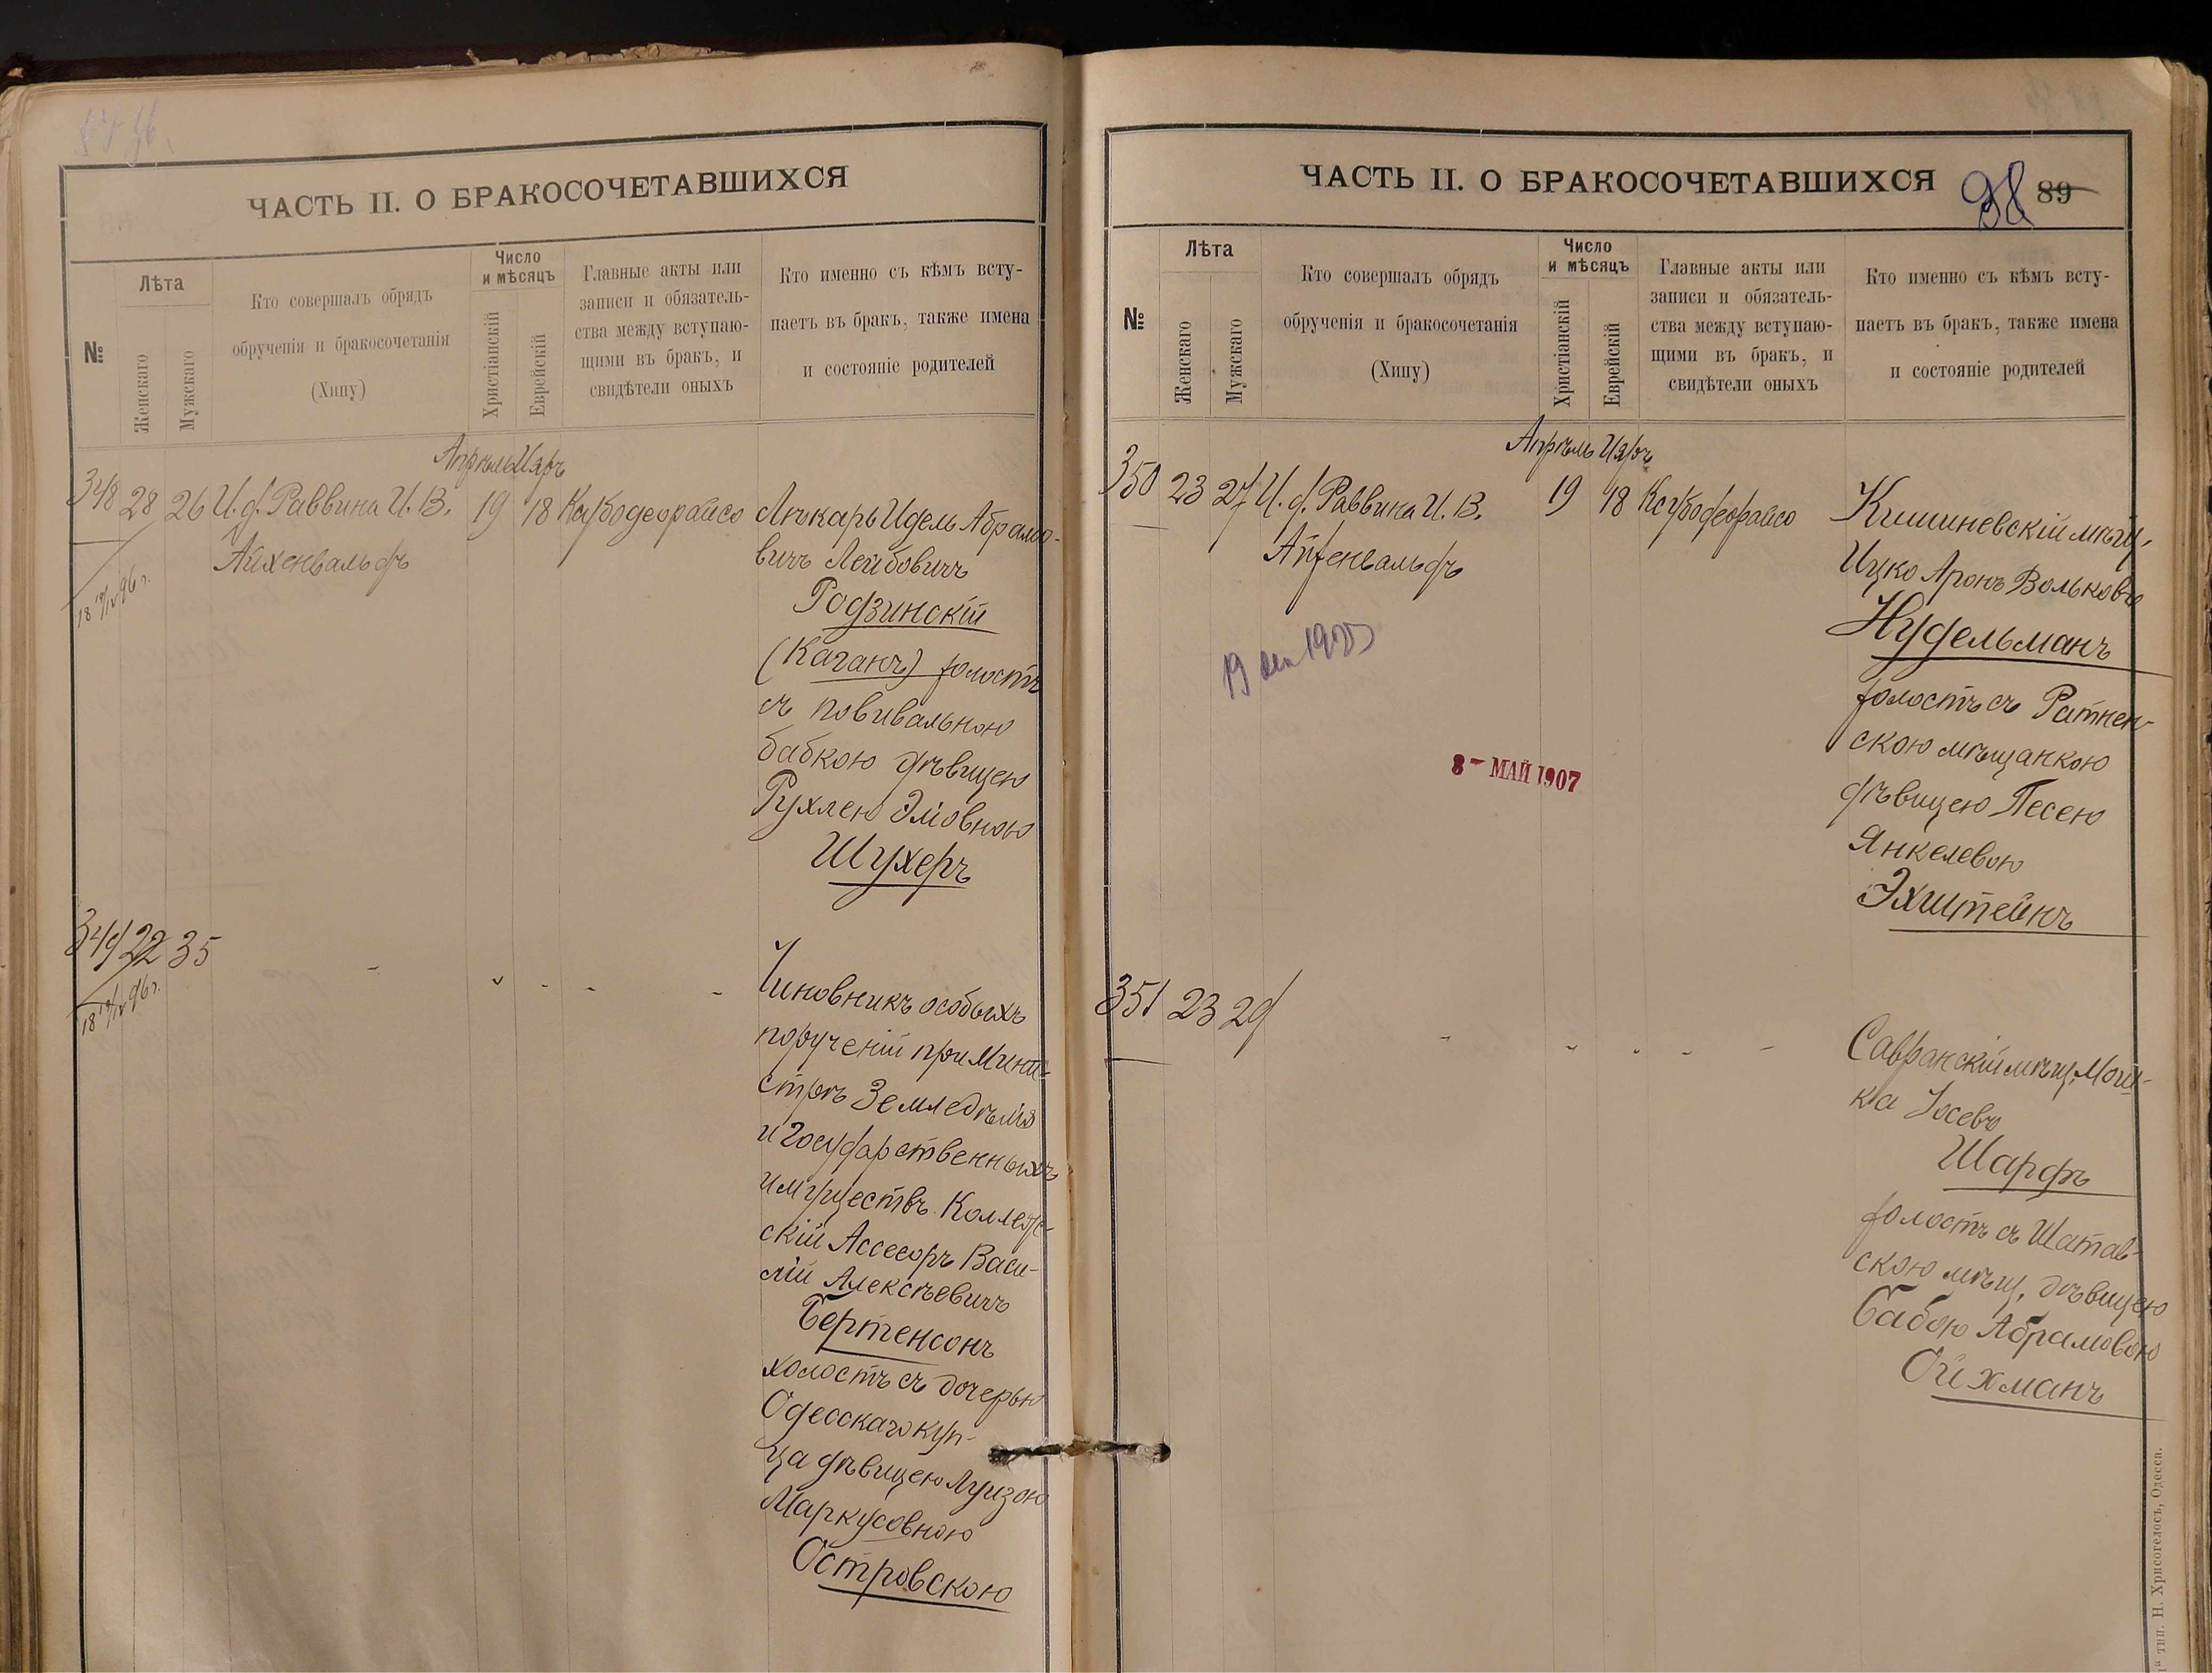 ЧАСТЬ II. О БРАКОСОЧЕТАВШИХСЯ
№
Лѣта
Женскаго
Мужскаго
Кто совершалъ обрядъ
обрученія и бракосочетанія
(Хипу)
Число
и мѣсяцъ
Христіанскій
Еврейскій
Главные акты или
записи и обязатель-
ства между вступаю-
щими въ бракъ, и
свидѣтели оныхъ
Кто именно съ кѣмъ всту-
паетъ въ бракъ, также имена
и состояніе родителей
Апрель Ияръ
348 28 26 И. д. Раввина И. В. 19 18 Касбодеорайсо
Айхенвальдъ
Лѣкарь Идель Абрамо-
вичъ Лейбовичъ
Родзинскій
(Каганъ) холостъ
съ повивальною
бабкою дѣвицею
Рухлею Эліовною
Шухеръ
349 22 35
Чиновникъ особыхъ
порученій при Мини-
стрѣ Земледѣлія
и Государственныхъ
имуществъ Коллеж-
скій Ассесоръ Васи-
лій Алексѣевичъ
Бертенсонъ
холостъ съ дочерью
Одесскаго куп-
ца дѣвицею Луизою
Маркусовною
Островскою
ЧАСТЬ II. О БРАКОСОЧЕТАВШИХСЯ
98 89
№
Лѣта
Женскаго
Мужскаго
Кто совершалъ обрядъ
обрученія и бракосочетанія
(Хипу)
Число
и мѣсяцъ
Христіанскій
Еврейскій
Главные акты или
записи и обязатель-
ства между вступаю-
щими въ бракъ, и
свидѣтели оныхъ
Кто именно съ кѣмъ всту-
паетъ въ бракъ, также имена
и состояніе родителей
Апрѣль Ияръ
350 23 27 И. д. Раввина И. В. 19 18 Касбодеорайсо
Айхенвальдъ
8 - МАЙ 1907
Кишиневскій мѣщ.
Ицко Аронъ Вольковъ
Нудельманъ
холостъ съ Ратнен-
скою мѣщанкою
дѣвицею Песею
Янкелевою
Эхштейнъ
351 23 29
Савранскій мѣщ. Мош-
ка Іосевъ
Шарфъ
холостъ съ Шатав-
скою мѣщ. дѣвицею
Бабою Абрамовою
Ойхманъ
тип. Н. Хрисогелосъ, Одесса.